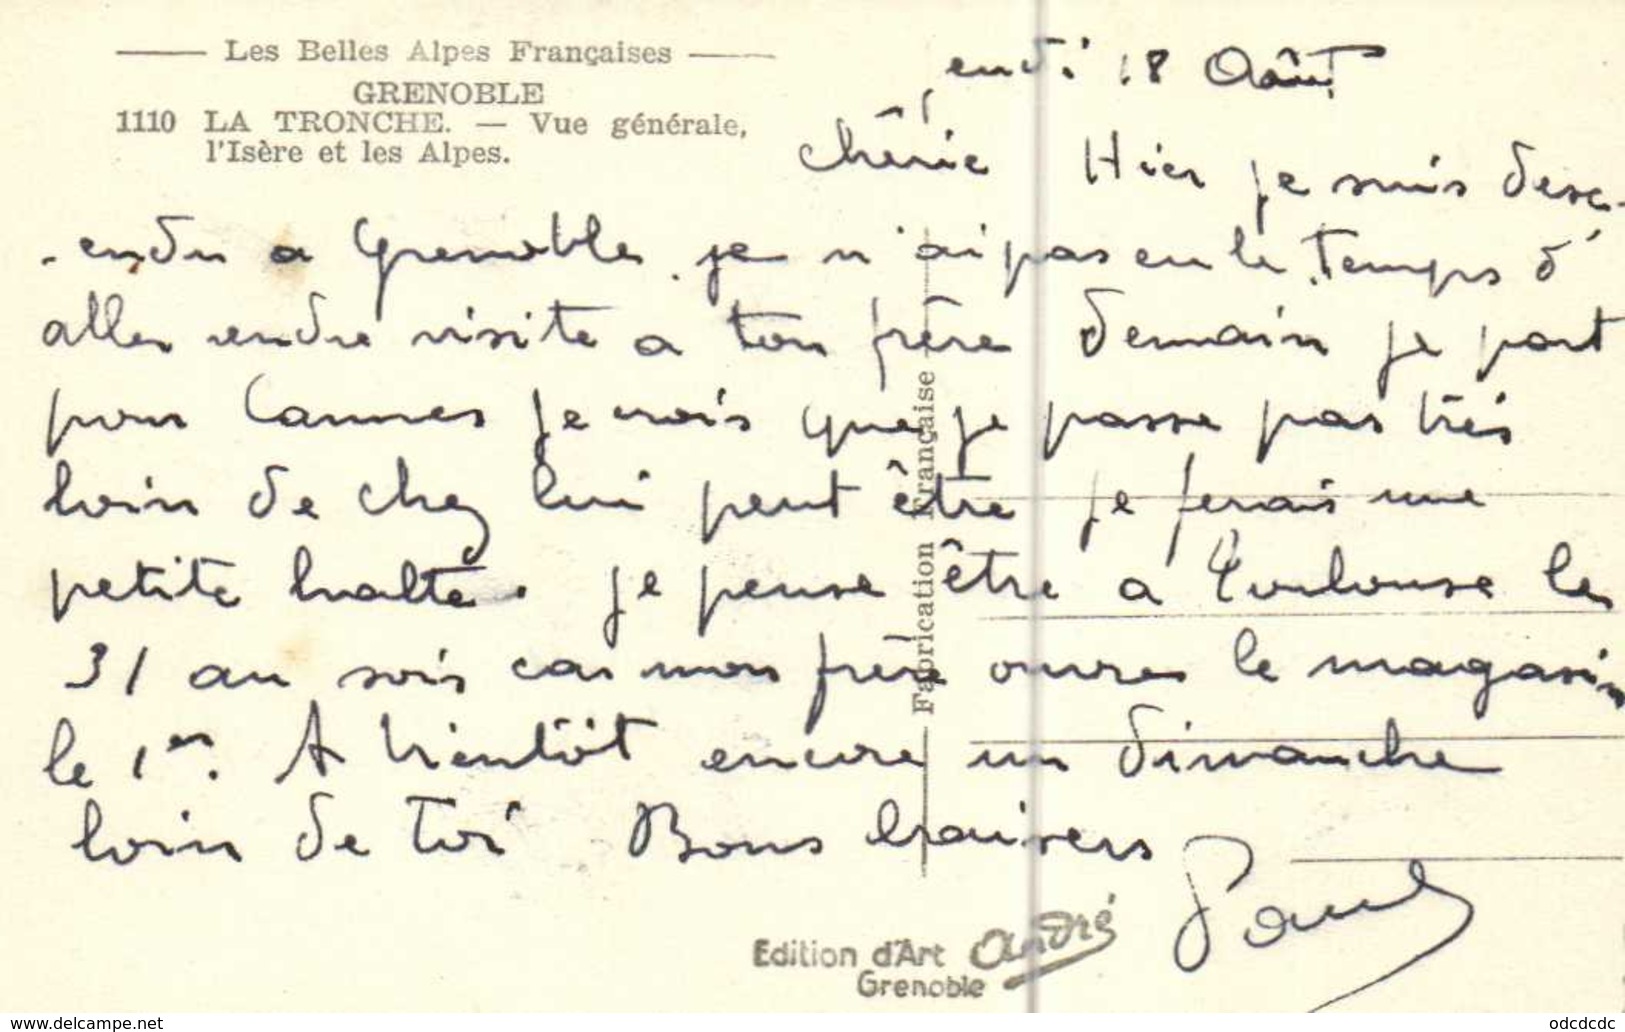 Les Belles Alpes Françaises
GRENOBLE
1110 LA TRONCHE. — Vue générale,
l'Isère et les Alpes.
jeudi 18 Août
Chérie Hier je suis desc-
-endu a Grenoble. je n'ai pas eu le temps d'
aller rendre visite a ton frère demain je part
pour Cannes je crois que je passe pas très
loin de chez lui peut être je ferais une
petite halte. je pense être a Toulouse le
31 au soir car mon frère ouvre le magasin
le 1er. A bientôt encore un dimanche
loin de toi Bons baisers
Paul
Fabrication Française
Edition d'Art André
Grenoble
www.delcampe.net
odcdcdc